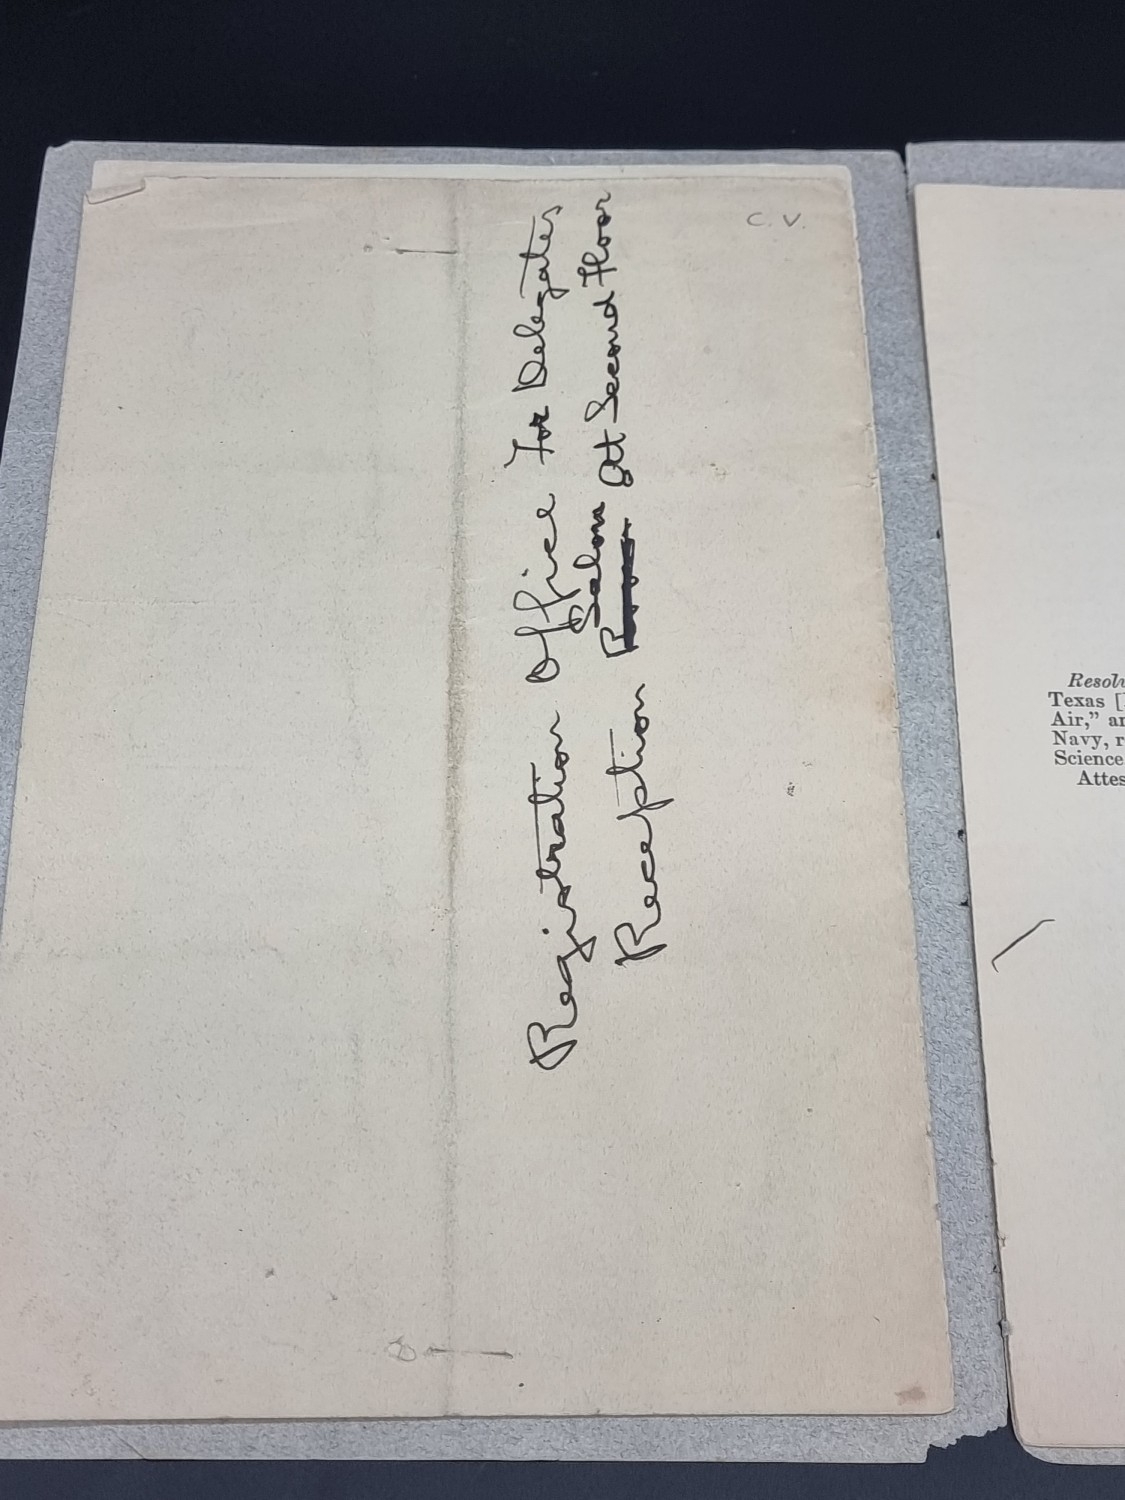 C. V.
Registration Office For Delegates
Salon
Reception Room Ott Second Floor
Resolu
Texas [
Air," an
Navy, r
Science
Attes